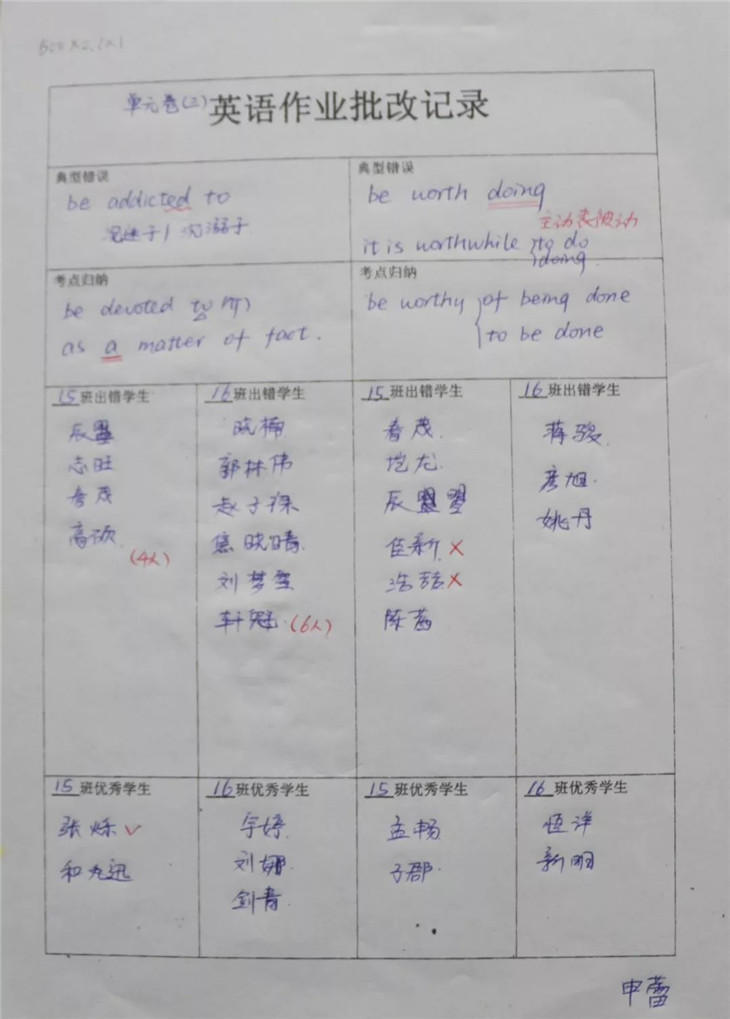 单元卷(二)英语作业批改记录
典型错误
be addicted to
沉迷于/沉溺于
典型错误
be worth doing
主动表被动
it is worthwhile to do
doing
考点归纳
be devoted to
as a matter of fact.
考点归纳
be worthy of being done
to be done
15班出错学生
辰盟
志旺
春茂
高硕
(4人)
16班出错学生
晓楠
郭林伟
赵子琛
焦晓晴
刘梦雪
轩冠(6人)
15班出错学生
春茂
垲龙
辰盟
佳新 ×
浩 ×
陈茜
16班出错学生
蒋骏
彦旭
姚丹
15班优秀学生
张烁 √
和九迅
16班优秀学生
宇婷
刘娜
剑青
15班优秀学生
孟畅
子郡
16班优秀学生
恒洋
新明
申蕾